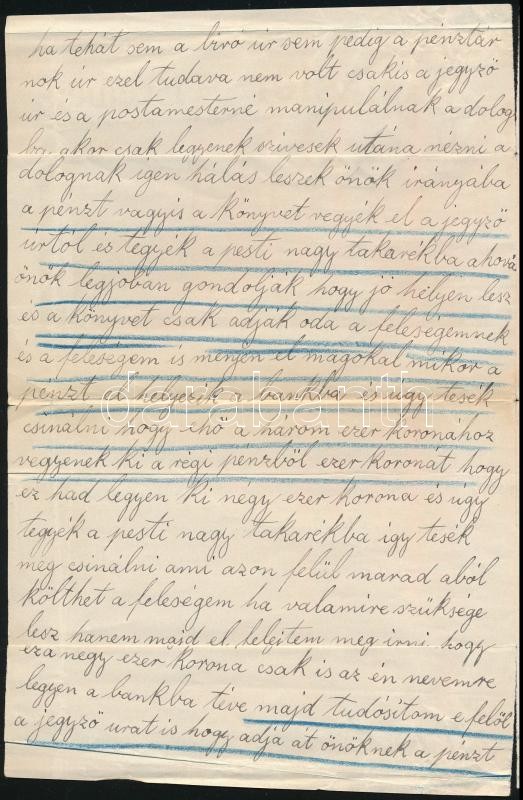 ha tehát sem a biró úr sem pedig a pénztár
nok úr ezel tudava nem volt csakis a jegyző
úr és a postamesterné manipulálnak a dolog
ba akor csak legyenek szivesek utána nézni a
dolognak igen hálás leszek önök irányába
a pénzt vagyis a könyvet vegyék el a jegyző
úrtól és tegyék a pesti nagy takarékba ahová
önök legjobban gondolják hogy jó helyen lesz
és a könyvet csak adják oda a feleségemnek
és a feleségem is menyen el magokal mikor a
pénzt el helyezik a bankba és úgy tesék
csinálni hogy ehö a három ezer koronához
vegyenek ki a régi penzböl ezer koronát hogy
ez had legyen ki négy ezer korona és úgy
tegyék a pesti nagy takarékba igy tesék
meg csinálni ami azon felül marad aból
költhet a feleségem ha valamire szüksége
lesz hanem majd el felejtem meg irni hogy
eza négy ezer korona csak is az én nevemre
legyen a bankba téve majd tudósitom e felöl
a jegyző urat is hogy adja át önöknek a pénzt
darabanth